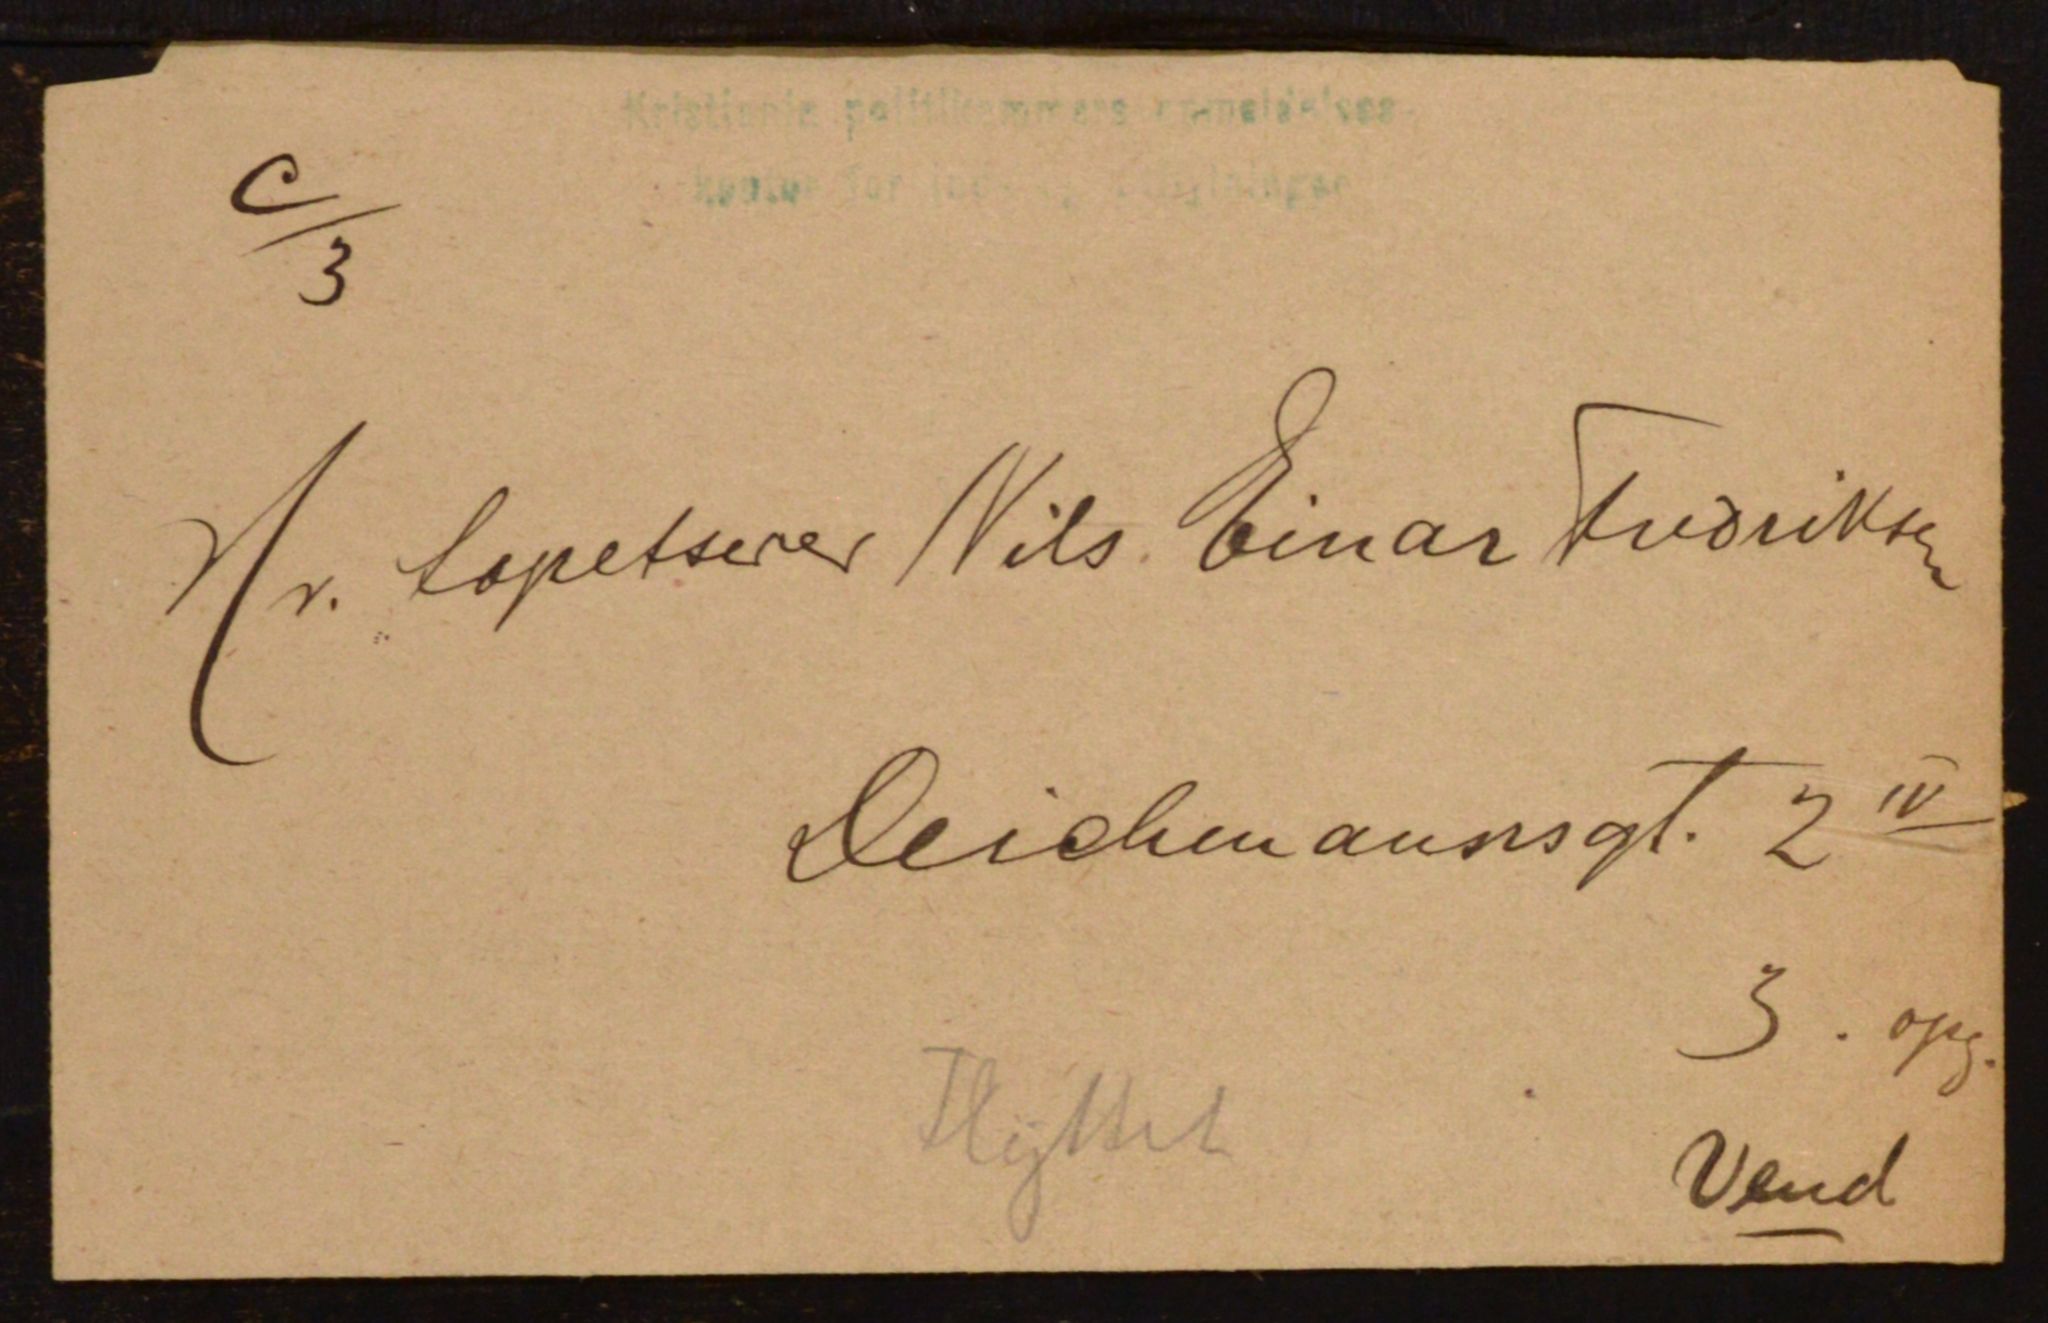 Kristiania politikammers anmeldelses-
kontor for ind- og utflytninger
C/3
Hr. tapetserer Nils Einar Fredriksen
Deichmannsgt. 2 IV
3. opg.
Flyttet
Vend